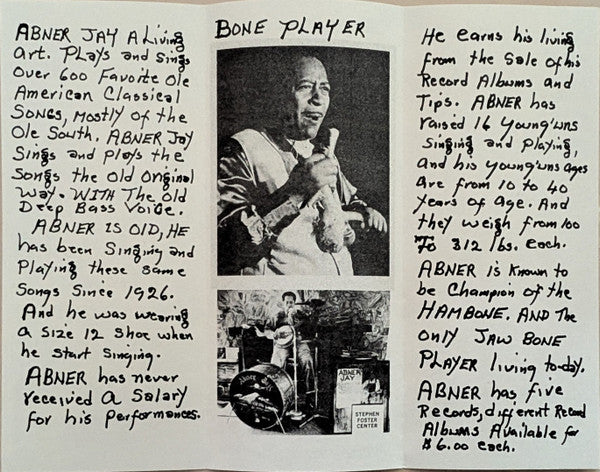 ABNER JAY A Living
Art. PLays and Sings
Over 600 Favorite Ole
American Classical
SONGS, MOSTLY OF THE
Ole South. ABNER Jay
Sings and plays the
Songs the Old Original
Way. WITH The Old
Deep Bass Voice.
ABNER IS OLD, HE
has been Singing and
Playing these same
Songs Since 1926.
And he was wearing
a size 12 Shoe when
he start Singing.
ABNER has never
received A Salary
for his Performances.
BONE PLAYER
ABNER
JAY
STEPHEN
FOSTER
CENTER
He earns his living
from the Sale of his
Record Albums and
Tips. ABNER has
raised 16 Young'uns
Singing and Playing,
and his young'uns ages
Are from 10 to 40
years of Age. And
they weigh from 100
To 312 lbs. Each.
ABNER is Known to
be Champion of the
HAMBONE. AND The
only JAW BONE
PLAYER living to-day.
ABNER has five
Records, different Record
Albums Available for
$6.00 each.